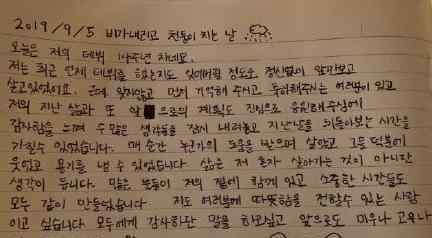 2019/9/5 비가내리고 천둥이 치는 날
오늘은 저의 데뷔 11주년 이네요.
저는 최근 언제 데뷔를 했는지도 잊어버릴 정도로 정신없이 앞만보고
살고있었어요. 근데 잊지않고 먼저 기억해 주시고 축하해주시는 여러분이 있고
저의 지난 삶과 또 앞으로의 계획도 진심으로 응원해주심에
감사함을 느껴 수 많은 생각들을 잠시 내려놓고 지난날을 되돌아보는 시간을
가질수 있었습니다. 매 순간 누군가의 도움을 받으며 살았고 그들 덕분에
웃었고 용기를 낼 수 있었습니다 삶은 저 혼자 살아가는 것이 아니란
생각이 듭니다. 많은 분들이 저의 곁에 함께 있고 소중한 시간들도
모두 같이 만들었습니다 저도 여러분께 따뜻함을 전할수 있는 사람
이고 싶습니다 모두에게 감사하단 말을 하고싶고 앞으로도 미우나 고우나